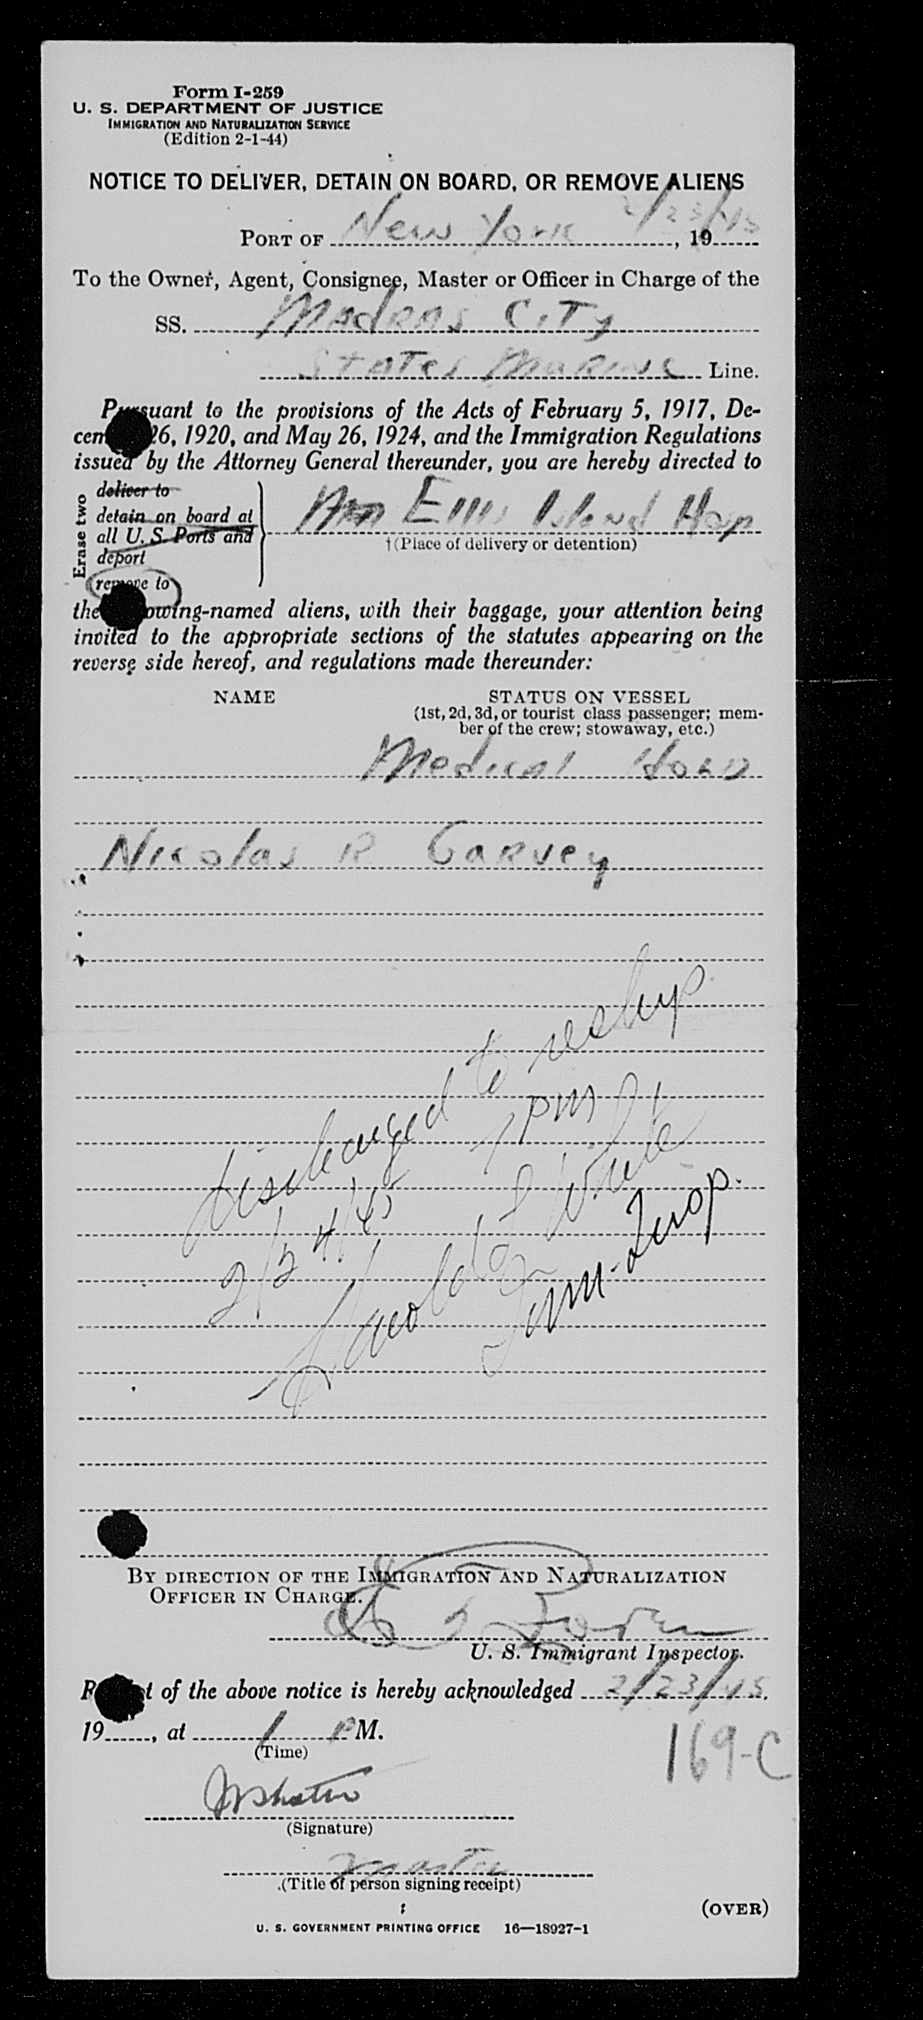 Form I-259
U. S. DEPARTMENT OF JUSTICE
IMMIGRATION AND NATURALIZATION SERVICE
(Edition 2-1-44)
NOTICE TO DELIVER, DETAIN ON BOARD, OR REMOVE ALIENS
PORT OF New York 2/23/45, 19
To the Owner, Agent, Consignee, Master or Officer in Charge of the
SS. Madras City
States Marine Line.
Pursuant to the provisions of the Acts of February 5, 1917, De-
cem 26, 1920, and May 26, 1924, and the Immigration Regulations
issued by the Attorney General thereunder, you are hereby directed to
Erase two
deliver to
detain on board at
all U. S. Ports and
deport
remove to
Ellis Island Hosp
†(Place of delivery or detention)
the owing-named aliens, with their baggage, your attention being
invited to the appropriate sections of the statutes appearing on the
reverse side hereof, and regulations made thereunder:
NAME STATUS ON VESSEL
(1st, 2d, 3d, or tourist class passenger; mem-
ber of the crew; stowaway, etc.)
Medical Hold
Nicolas R Garvey
Discharged to reship
2/24/45 7 PM
Harold L White
Imm. Insp.
BY DIRECTION OF THE IMMIGRATION AND NATURALIZATION
OFFICER IN CHARGE.
U. S. Immigrant Inspector.
R t of the above notice is hereby acknowledged 2/23/45,
19, at 1 PM.
(Time)
169-C
(Signature)
Master
(Title of person signing receipt)
(OVER)
U. S. GOVERNMENT PRINTING OFFICE 16—18927-1